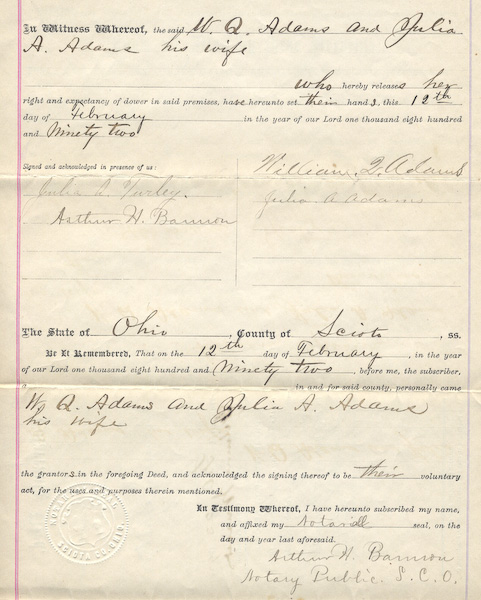 In Witness Whereof, the said W. Q. Adams and Julia
A. Adams his wife
who hereby releases her
right and expectancy of dower in said premises, have hereunto set their hands, this 12th
day of February in the year of our Lord one thousand eight hundred
and Ninety two
Signed and acknowledged in presence of us:
William Q. Adams
Julia A. Turley.
Julia A Adams
Arthur H. Bannon
The State of Ohio, County of Scioto, ss.
Be It Remembered, That on the 12th day of February, in the year
of our Lord one thousand eight hundred and Ninety two, before me, the subscriber,
a in and for said county, personally came
W. Q. Adams and Julia A. Adams
his wife
the grantors in the foregoing Deed, and acknowledged the signing thereof to be their voluntary
act, for the uses and purposes therein mentioned.
In Testimony Whereof, I have hereunto subscribed my name,
and affixed my Notarial seal, on the
day and year last aforesaid.
Arthur H. Bannon
Notary Public. S. C. O.